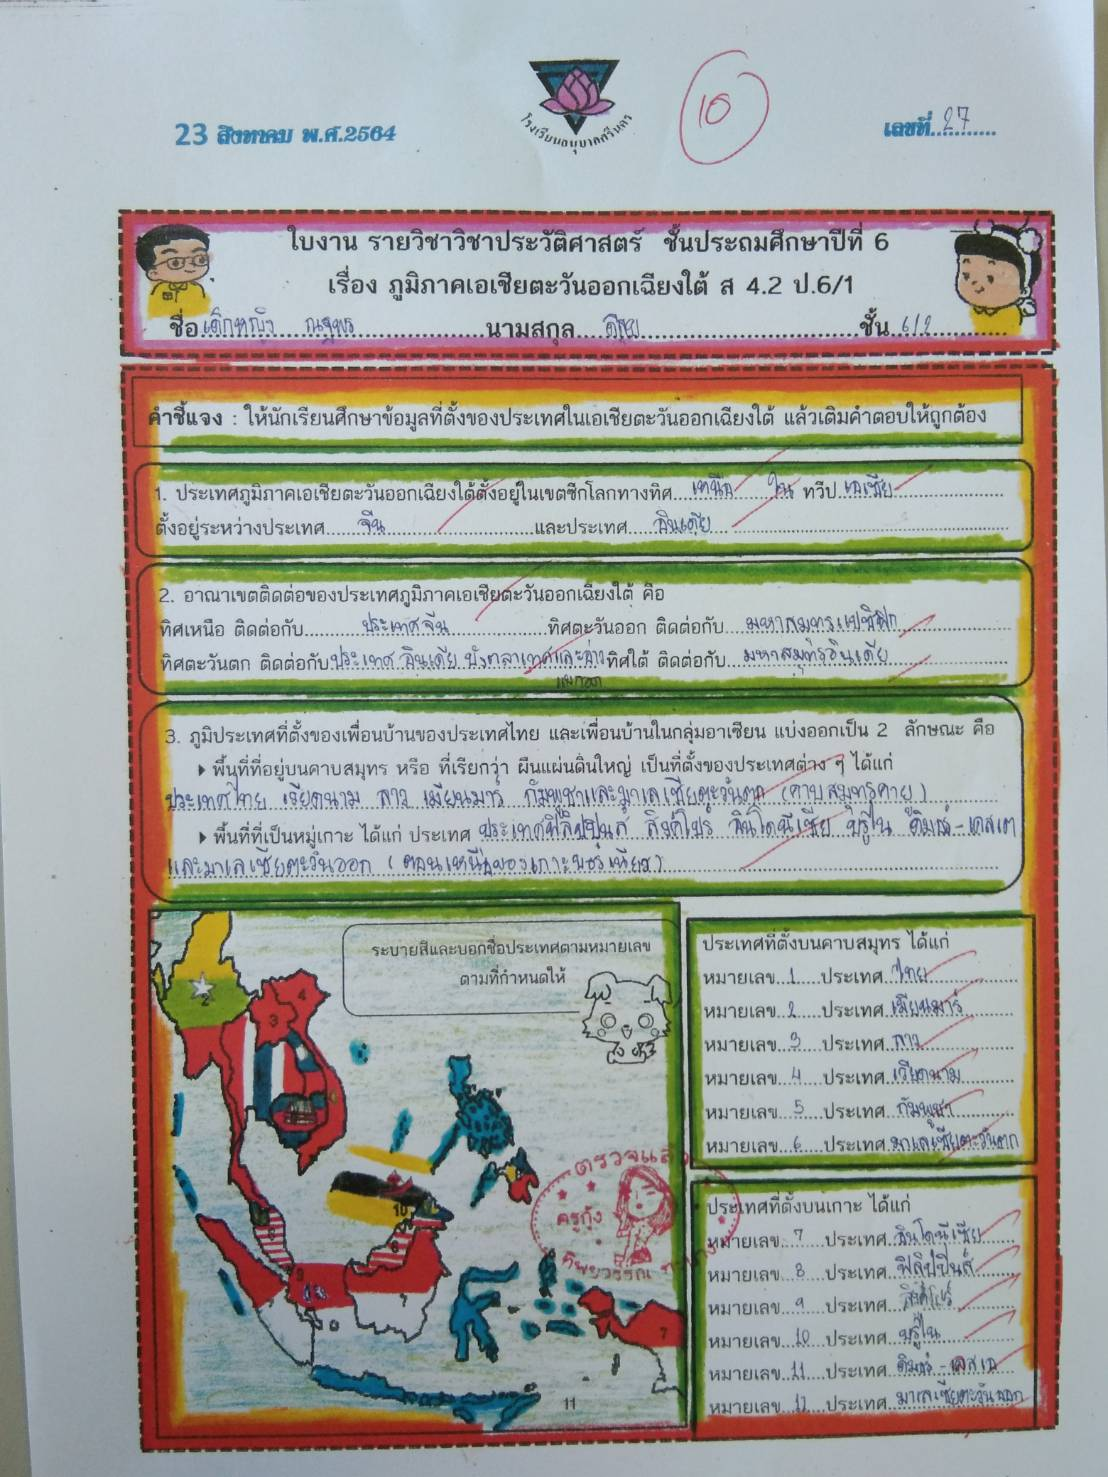 โรงเรียนอนุบาลศรีนคร
10
23 สิงหาคม พ.ศ.2564
เลขที่ 27
ใบงาน รายวิชาวิชาประวัติศาสตร์ ชั้นประถมศึกษาปีที่ 6
เรื่อง ภูมิภาคเอเชียตะวันออกเฉียงใต้ ส 4.2 ป.6/1
ชื่อ เด็กหญิง ณฐพร นามสกุล ชั้น 6/2
คำชี้แจง : ให้นักเรียนศึกษาข้อมูลที่ตั้งของประเทศในเอเชียตะวันออกเฉียงใต้ แล้วเติมคำตอบให้ถูกต้อง
1. ประเทศภูมิภาคเอเชียตะวันออกเฉียงใต้ตั้งอยู่ในเขตซีกโลกทางทิศ เหนือ ใน ทวีป เอเชีย
ตั้งอยู่ระหว่างประเทศ จีน และประเทศ อินเดีย
2. อาณาเขตติดต่อของประเทศภูมิภาคเอเชียตะวันออกเฉียงใต้ คือ
ทิศเหนือ ติดต่อกับ ประเทศจีน ทิศตะวันออก ติดต่อกับ มหาสมุทรแปซิฟิก
ทิศตะวันตก ติดต่อกับ ประเทศ อินเดีย บังคลาเทศและอ่าว ทิศใต้ ติดต่อกับ มหาสมุทรอินเดีย
เบงกอล
3. ภูมิประเทศที่ตั้งของเพื่อนบ้านของประเทศไทย และเพื่อนบ้านในกลุ่มอาเซียน แบ่งออกเป็น 2 ลักษณะ คือ
พื้นที่ที่อยู่บนคาบสมุทร หรือ ที่เรียกว่า ผืนแผ่นดินใหญ่ เป็นที่ตั้งของประเทศต่าง ๆ ได้แก่
ประเทศไทย เวียดนาม ลาว เมียนมาร์ กัมพูชาและมาเลเซียตะวันตก (คาบสมุทรมลายู)
พื้นที่ที่เป็นหมู่เกาะ ได้แก่ ประเทศ ประเทศฟิลิปปินส์ สิงคโปร์ อินโดนีเซีย บรูไน ติมอร์-เลสเต
และมาเลเซียตะวันออก (ตอนเหนือของเกาะบอร์เนียว)
ระบายสีและบอกชื่อประเทศตามหมายเลข
ตามที่กำหนดให้
2
4
3
10
9
7
11
ตรวจแล้ว
ครูกุ้ง
ทิพยวรรณ
ประเทศที่ตั้งบนคาบสมุทร ได้แก่
หมายเลข 1 ประเทศ ไทย
หมายเลข 2 ประเทศ เมียนมาร์
หมายเลข 3 ประเทศ ลาว
หมายเลข 4 ประเทศ เวียดนาม
หมายเลข 5 ประเทศ กัมพูชา
หมายเลข 6 ประเทศ มาเลเซียตะวันตก
ประเทศที่ตั้งบนเกาะ ได้แก่
หมายเลข 7 ประเทศ อินโดนีเซีย
หมายเลข 8 ประเทศ ฟิลิปปินส์
หมายเลข 9 ประเทศ สิงคโปร์
หมายเลข 10 ประเทศ บรูไน
หมายเลข 11 ประเทศ ติมอร์-เลสเต
หมายเลข 12 ประเทศ มาเลเซียตะวันออก